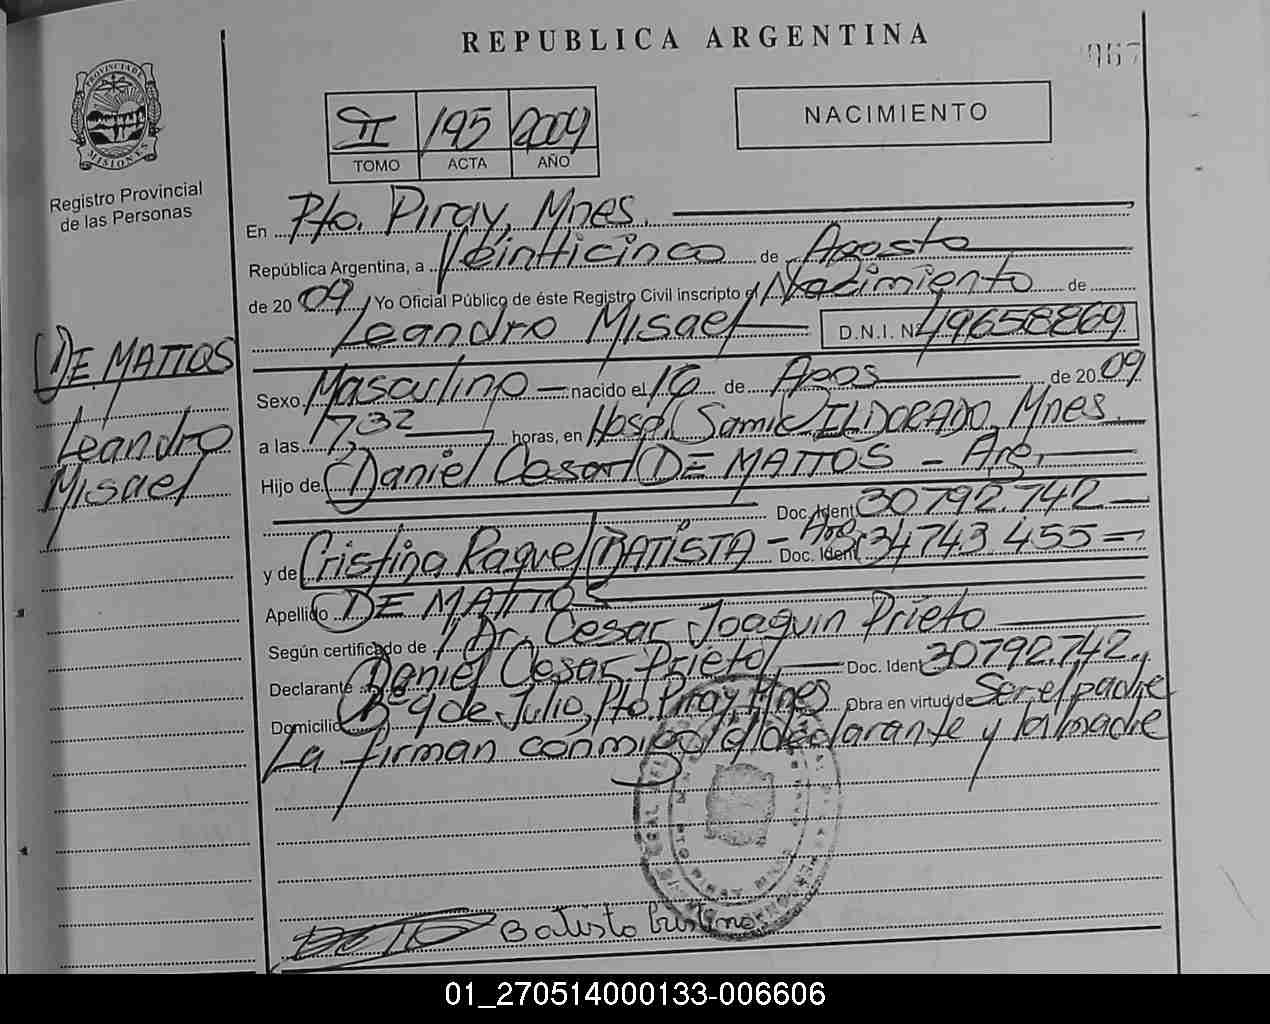 REPUBLICA ARGENTINA
967
PROVINCIA DE
MISIONES
Registro Provincial
de las Personas
II 195 2009
TOMO ACTA AÑO
NACIMIENTO
En Pto. Piray, Mnes.
República Argentina, a Veinticinco de Agosto
de 20 09 Yo Oficial Público de éste Registro Civil inscripto el Nacimiento de
Leandro Misael D.N.I. Nº 49658869
DE MATTOS
Leandro
Misael
Sexo Masculino nacido el 16 de Agos de 20 09
a las 17,32 horas, en Hosp. Samic ELDORADO, Mnes
Hijo de Daniel Cesar DE MATTOS - Arg.
Doc. Ident 30792.742
y de Cristina Raquel BATISTA - Arg. Doc. Ident 34743.455
Apellido DE MATTOS
Según certificado de Dr. Cesar Joaquin Prieto
Declarante Daniel Cesar Prieto Doc. Ident 30792742
Domicilio Bº 9 de Julio, Pto Piray, Mnes Obra en virtud de Ser el padre
La firman conmigo el declarante y la madre
PTO PIRAY MNES
Batista Cristina
01_270514000133-006606